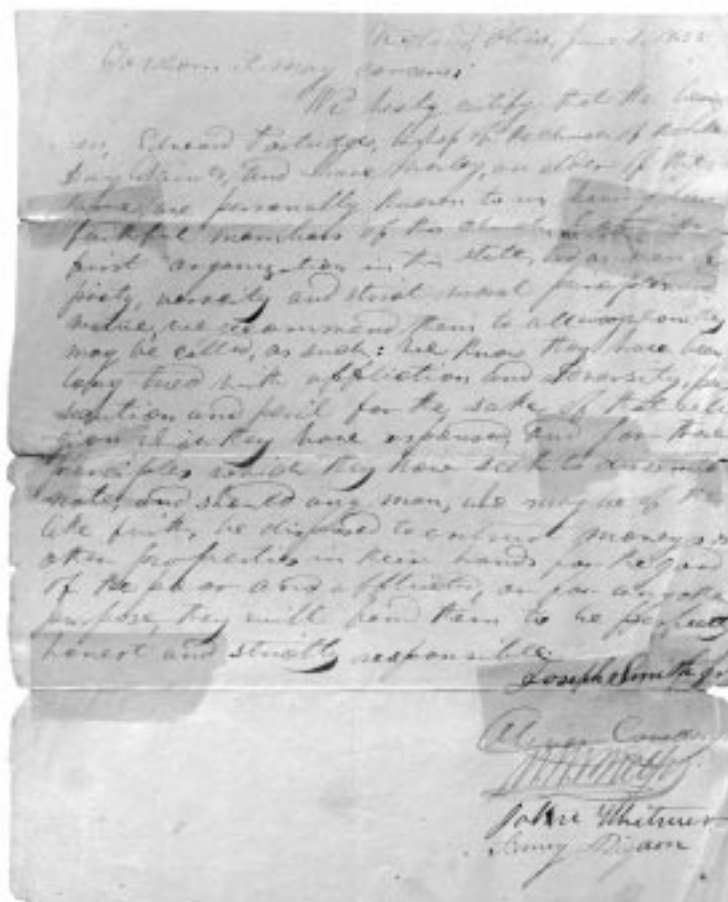 Ohio, June 1, 1835
To whom it may concern:
We hereby certify that the
Edward Partridge, bishop of the church of
Day Saints, and Isaac Morley, an elder of the
same, are personally known to us, having been
faithful members of the church since its
first organization in this state, as men of
piety, veracity and strict moral
we recommend them to all
may be called, as such: We know they have been
long tried with affliction and adversity, per
secution and peril for the sake of that reli
gion which they have espoused, and for those
principles which they have seek to dissemi
nate, and should any man, who may be of the
like faith, be disposed to entrust moneys or
other properties in their hands for the good
of the poor and afflicted, or for any other
purpose, they will find them to be perfectly
honest and strictly responsible.
Joseph Smith jr
John Whitmer